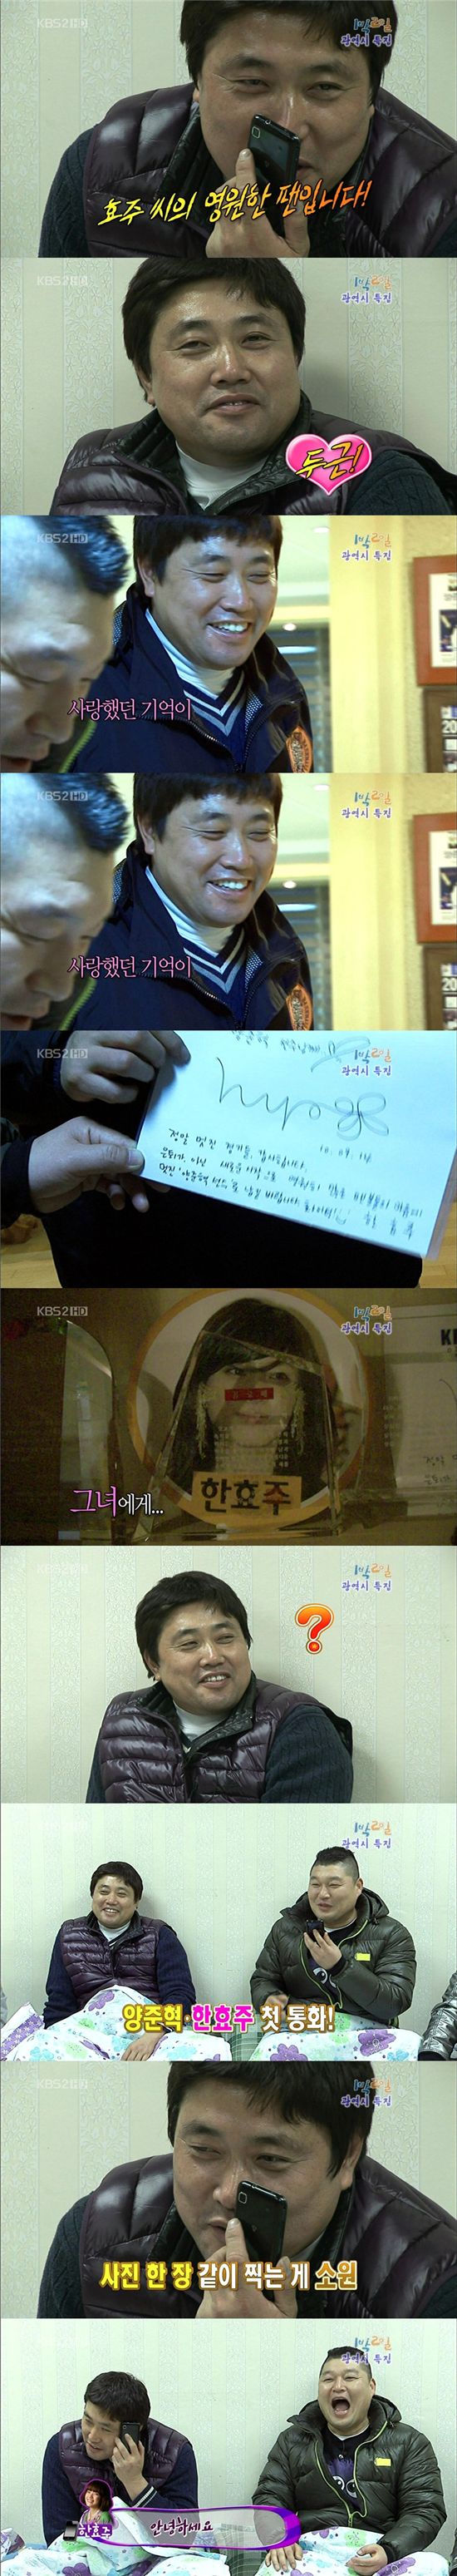 1박2일
광역시 특집
효주 씨의 영원한 팬입니다!
KBS2 HD
1박2일
광역시 특집
두근!
KBS2 HD
1박2일
광역시 특집
사랑했던 기억이
KBS2 HD
1박2일
광역시 특집
사랑했던 기억이
KBS2 HD
1박2일
광역시 특집
10. 09. 14
정말 멋진 경기들, 감사드립니다.
은퇴가 아닌 새로운 시작으로
멋진 '양준혁
한효주
KBS2 HD
1박2일
광역시 특집
한효주
그녀에게...
1박2일
광역시 특집
?
1박2일
광역시 특집
양준혁·한효주 첫 통화!
KBS2 HD
1박2일
광역시 특집
사진 한 장 같이 찍는 게 소원
1박2일
광역시 특집
한효주
안녕하세요